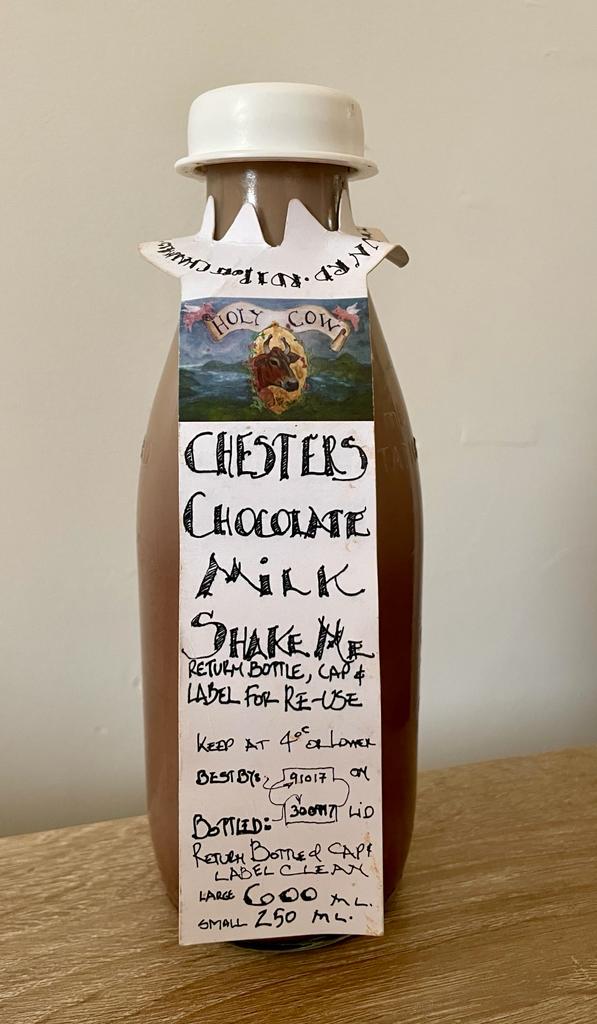 HOLY COW
CHESTERS
CHOCOLATE
MILK
SHAKE ME
RETURN BOTTLE, CAP &
LABEL FOR RE-USE
KEEP AT 4°C OR LOWER
BEST BY: 91017 ON
BOTTLED: 300917 LID
RETURN BOTTLE & CAP &
LABEL CLEAN
LARGE 600 ML.
SMALL 250 ML.